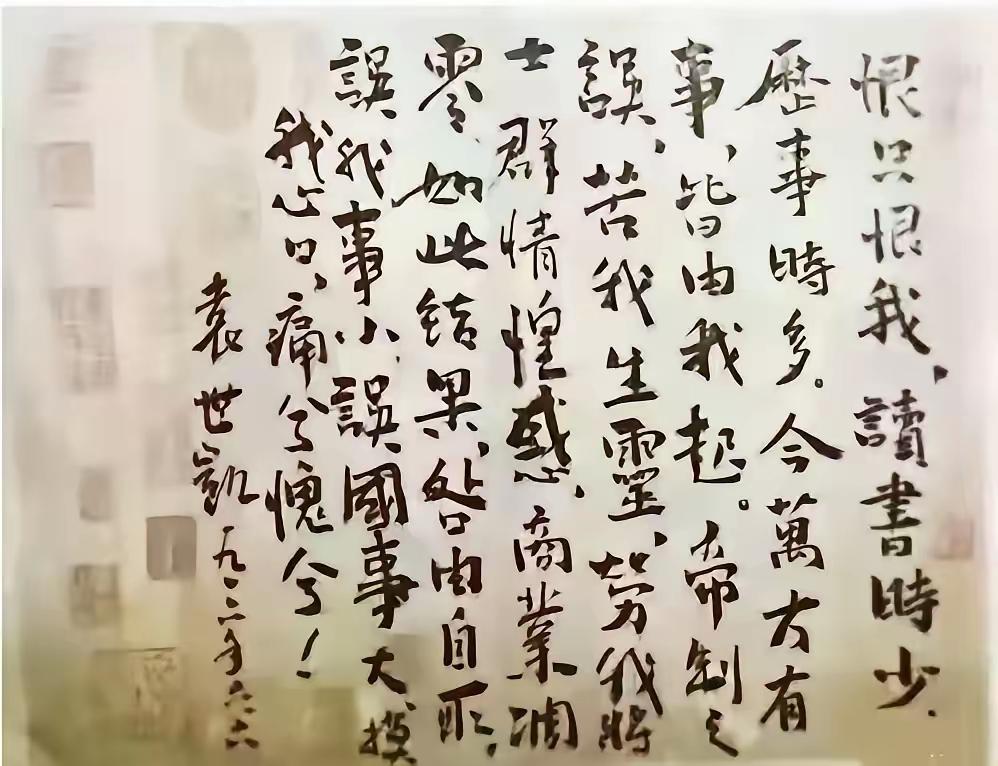 恨只恨我、讀書時少.
歷事時多。今萬方有
事、皆由我起。帝制之
誤、苦我生靈、勞我將
士群情惶惑、商業凋
零、如此結果、咎由自取、
誤我事小、誤國事大、摸
我心口、痛兮愧兮！
袁世凱一九一六年六六